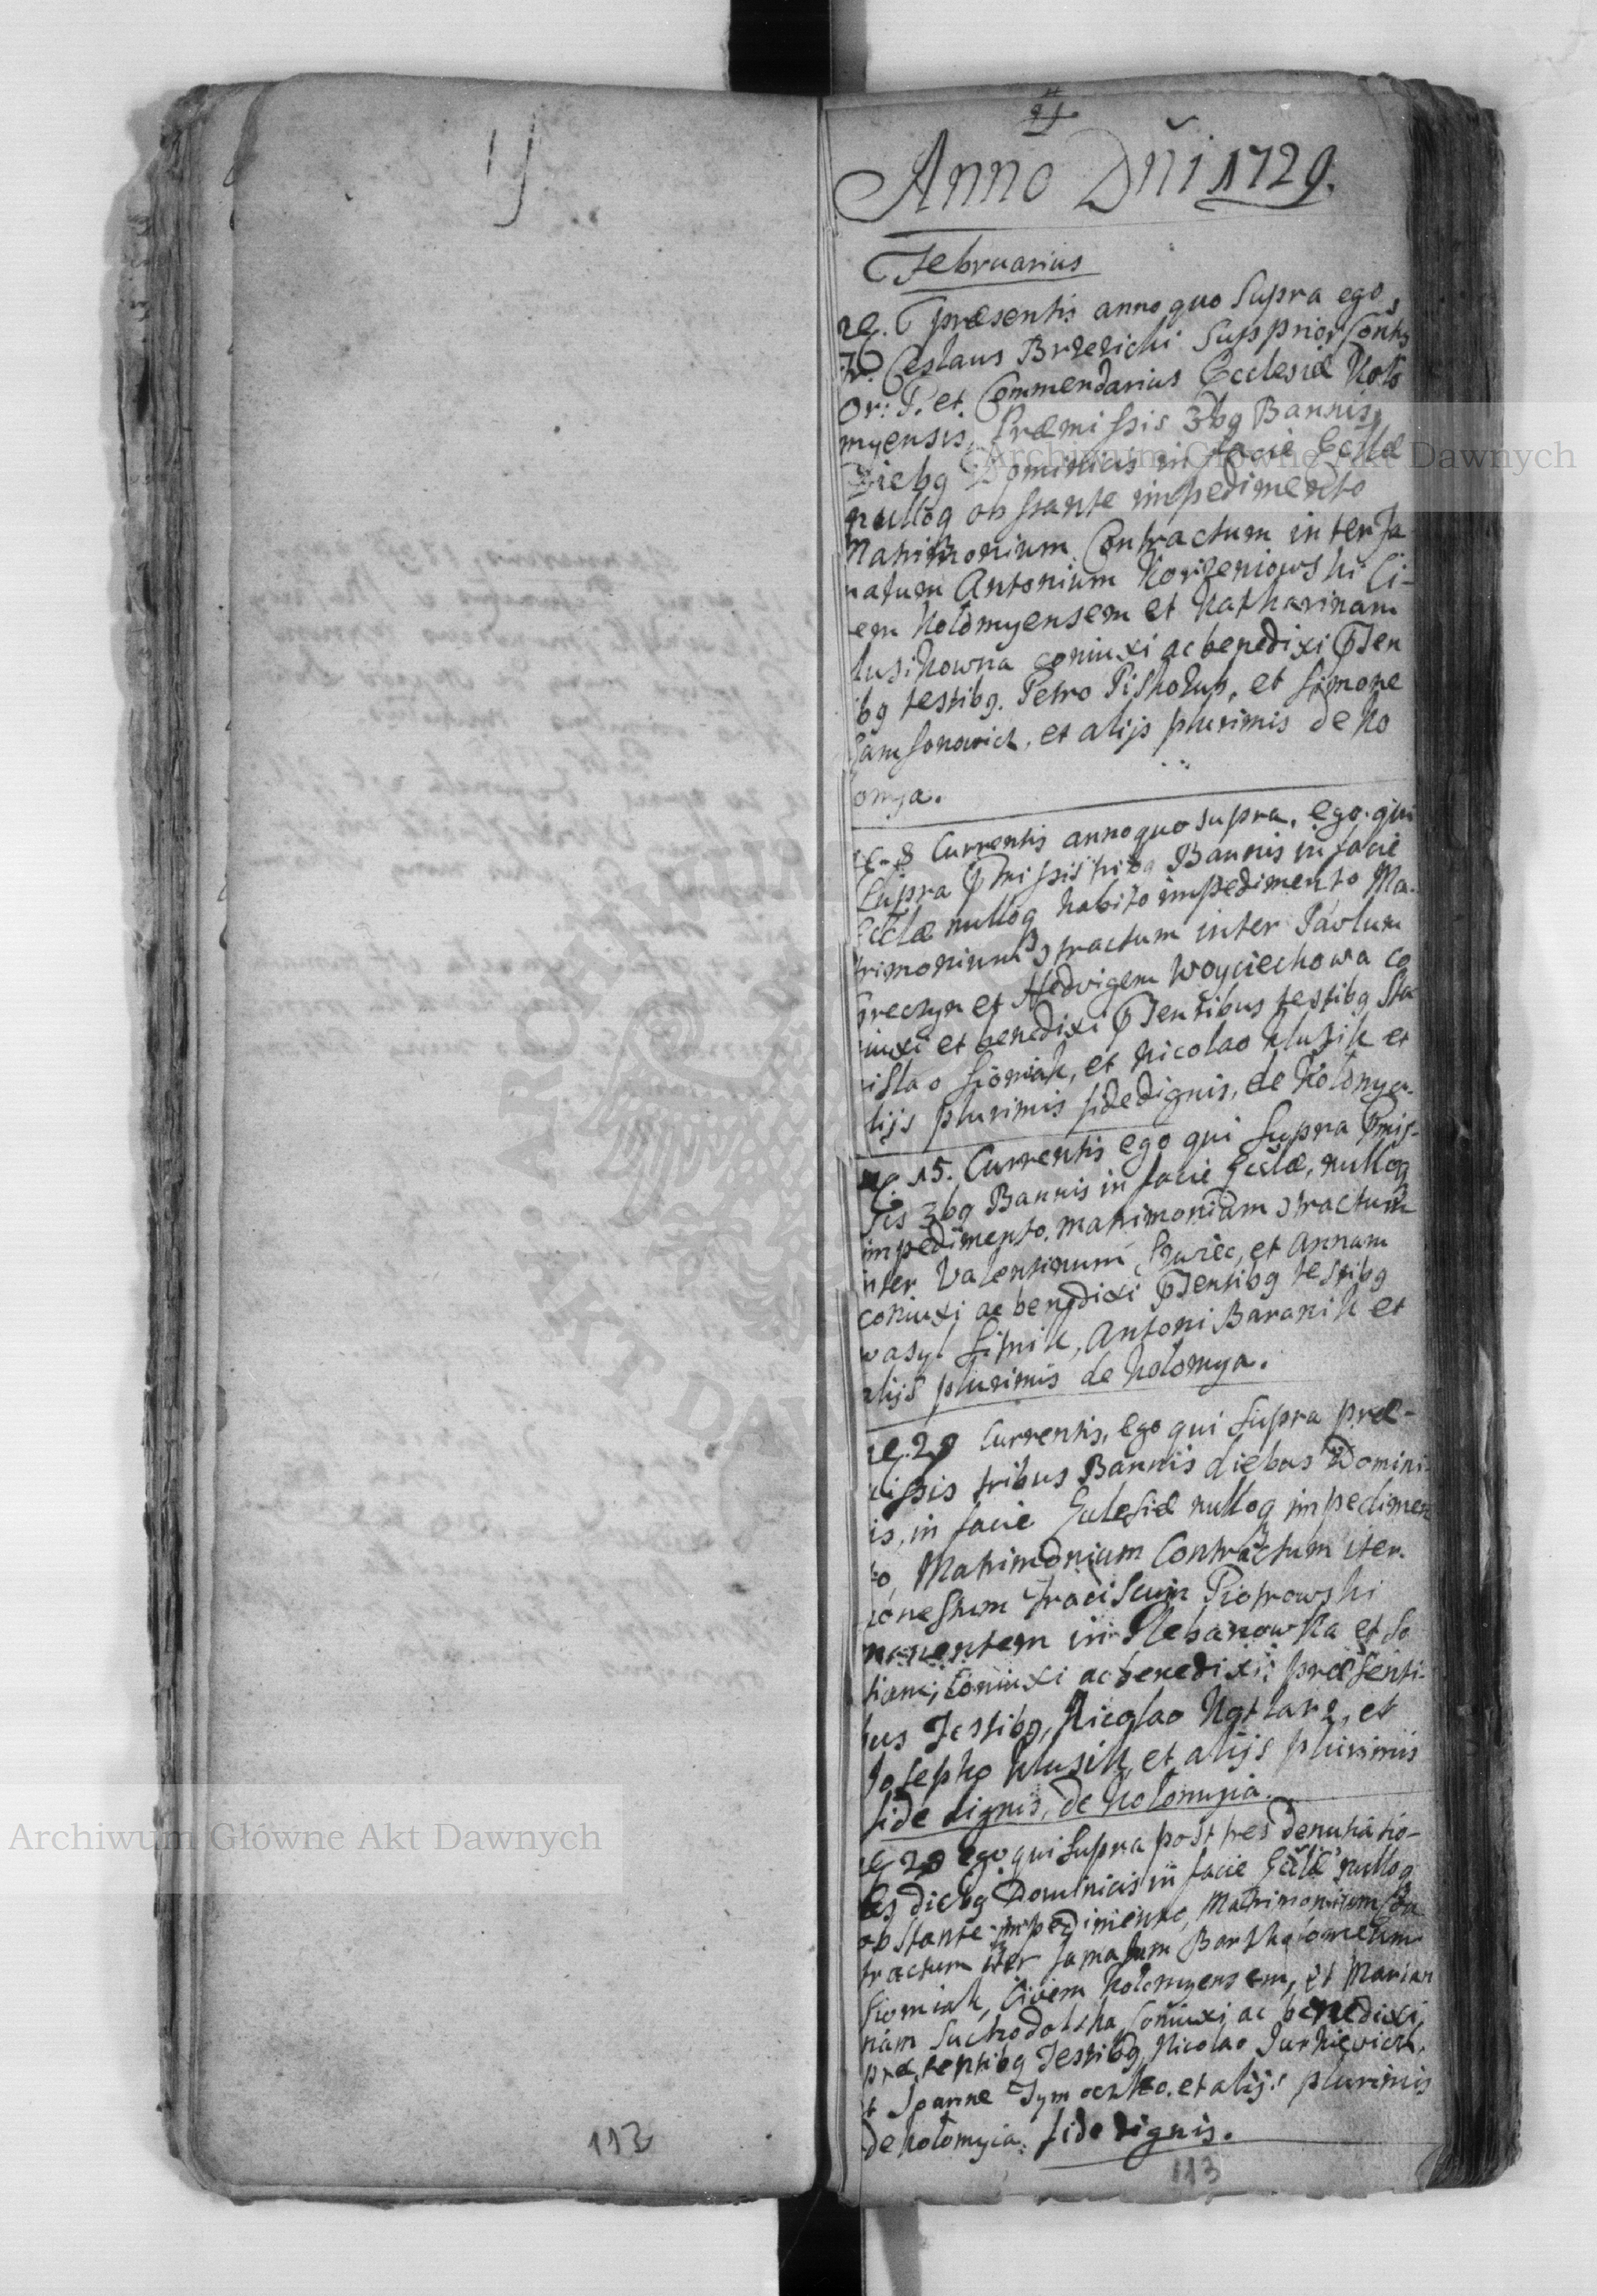 Anno Dñi 1729.
Februarius
præsentis anno quo Supra ego
Fr. Ceslaus Brzezicki Supprior Contus
Or: P. et Commendarius Ecclesiæ Kolo
myensis, Præmissis 3bg Bannis,
Diebg Dominicis in facie Ecllæ
nullog obstante impedimento
Matrimonium Contractum inter Fa
matum Antonium Korzeniowski Ci-
em Kolomyensem et Katharinam
lusikowna coniuxi ac benedixi
bg testibg. Petro Piskozub, et Simone
Samsonowicz, et alijs plurimis de Ko
omya.
8 Currentis anno quo supra, ego qui
Supra missis tribg Bannis in facie
Ecclæ nullog habito impedimento Ma-
trimonium tractum inter Pavlum
et Hedvigem Woyciechowa co
iuxi et benedixi sentibus testibg Sta
islao Siomak, et Nicolao Klusik et
lijs plurimis fidedignis, de Kolomya.
15. Currentis ego qui Supra mis-
sis 3bg Bannis in facie Ecclæ, nullog
impedimento, matrimoniam tractum
inter Valentinum Szwiec, et Annam
coniuxi ac benedixi sentibg testibg
wasyl Sitnik, Antoni Baranik et
alijs plurimis de Kolomya.
Currentis, ego qui Supra præ-
issis tribus Bannis diebus Domini
is, in facie Eclesiæ nullog impedimen
to, Matrimonium Contractum iter
onestum Traciscum Piotrowski
manentem in Plebanowka et So
tiam; Coniuxi ac benedixi; præsenti-
bus Testibg, Nicolao et
Josepho Klusik et alijs plurimis
fide dignis, de Kolomyia.
ego qui Supra post tres denutiatio-
es diebg Dominicis in facie Eccle nullog
obstante impedimento, Matrimonium Con
tractum iter famatum Bartholomeum
Siomiak, Civem Kolomyensem, et Marian
nam Suchodolska Coniuxi ac benedixi,
præsentibg Testibg Nicolao Jurkievicz,
et Joanne Tymoczko. et alijs plurimis
de Kolomyia. fide dignis.
113
113
Archiwum Główne Akt Dawnych
Archiwum Główne Akt Dawnych